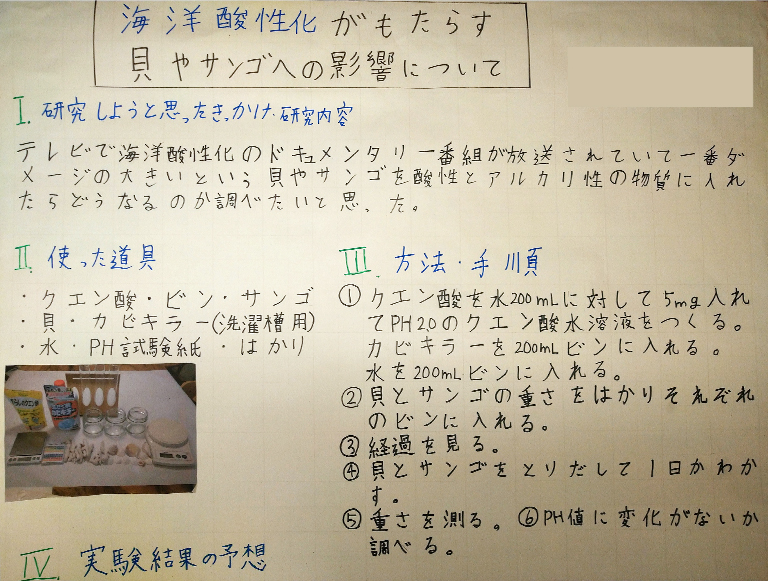 海洋酸性化がもたらす
貝やサンゴへの影響について
I. 研究しようと思ったきっかけ・研究内容
テレビで海洋酸性化のドキュメンタリー番組が放送されていて一番ダ
メージの大きいという貝やサンゴを酸性とアルカリ性の物質に入れ
たらどうなるのか調べたいと思った。
II. 使った道具
・クエン酸・ビン・サンゴ
・貝・カビキラー(洗濯槽用)
・水・PH試験紙・はかり
III. 方法・手順
① クエン酸を水200mLに対して5mg入れ
てPH2.0のクエン酸水溶液をつくる。
カビキラーを200mLビンに入れる。
水を200mLビンに入れる。
② 貝とサンゴの重さをはかりそれぞれ
のビンに入れる。
③ 経過を見る。
④ 貝とサンゴをとりだして1日かわか
す。
⑤ 重さを測る。⑥PH値に変化がないか
調べる。
IV. 実験結果の予想